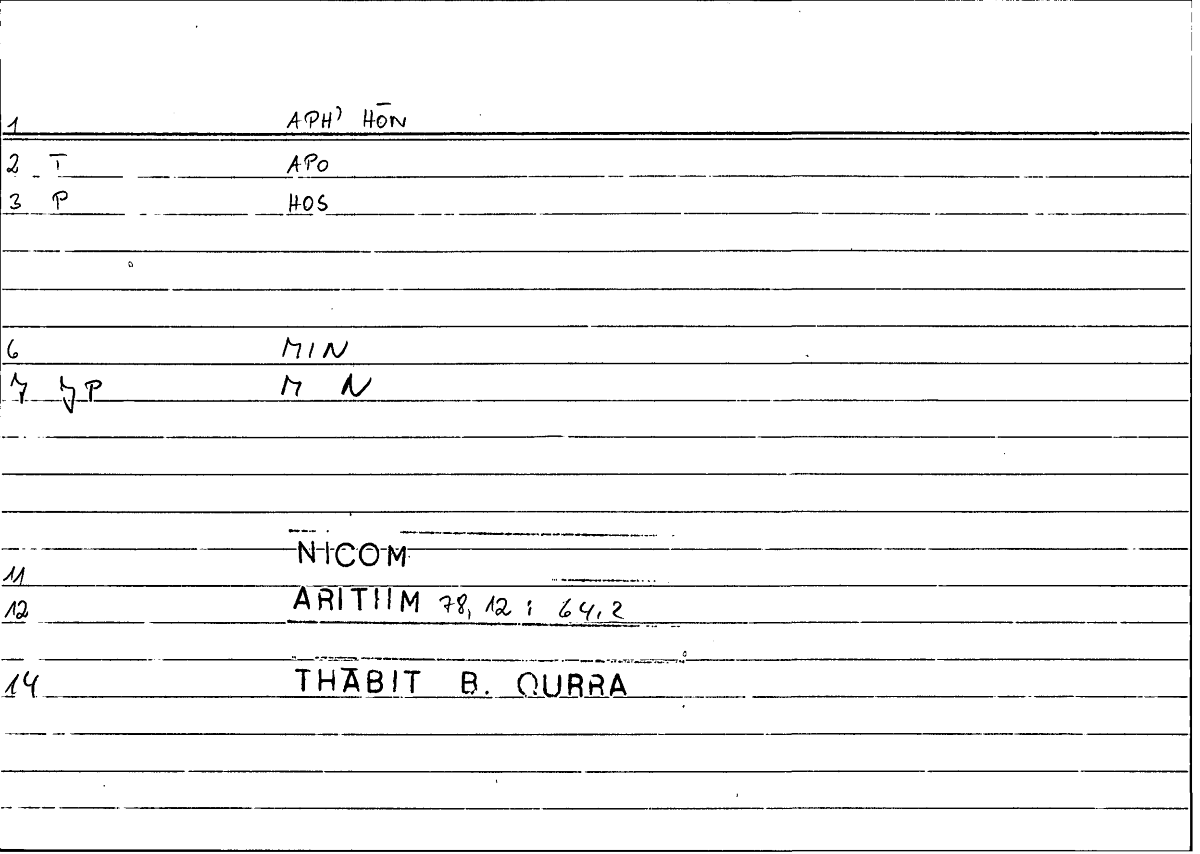 1 APH' HŌN
2 T APO
3 P HOS
6 MIN
7 JP M N
NICOM
11
12 ARITHM 78, 12 ; 64,2
14 THĀBIT B. QURRA